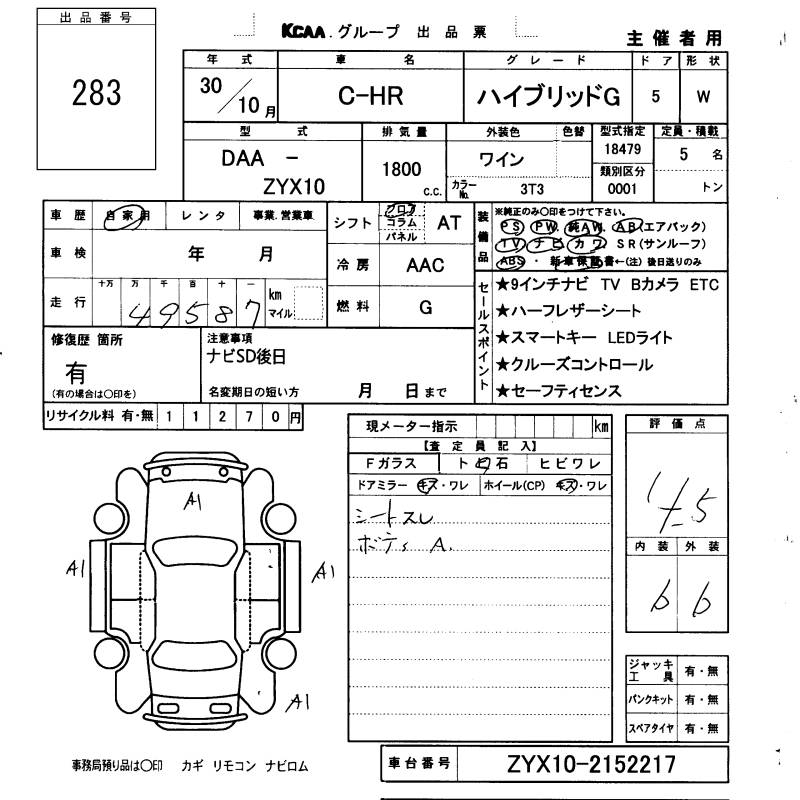 出品番号
283
KCAA.グループ 出品票
主催者用
年式 車名 グレード ドア 形状
30/10月 C-HR ハイブリッドG 5 W
型式 排気量 外装色 色替 型式指定 定員・積載
DAA - ZYX10 1800 c.c. ワイン 18479 5 名
カラーNo. 3T3 類別区分 0001 トン
車歴 自家用 レンタ 事業.営業車
車検 年 月
走行 十万 万 千 百 十 一
49587 km マイル
シフト フロア コラム パネル AT
冷房 AAC
燃料 G
装備品
※純正のみ〇印をつけて下さい。
PS PW 純AW. AB(エアバック)
TV ナビ カワ SR(サンルーフ)
ABS・新車保証書←(注) 後日送りのみ
セールスポイント
★9インチナビ TV Bカメラ ETC
★ハーフレザーシート
★スマートキー LEDライト
★クルーズコントロール
★セーフティセンス
修復歴 箇所
有
(有の場合は〇印を)
注意事項
ナビSD後日
名変期日の短い方 月 日まで
リサイクル料 有・無 11270円
現メーター指示 km
【査定員記入】
Fガラス ト石 ヒビワレ
ドアミラー キズ・ワレ ホイール(CP) キズ・ワレ
シートスレ
ボディ A.
評価点
4.5
内装 外装
6 6
A1
A1
A1
A1
ジャッキ工具 有・無
パンクキット 有・無
スペアタイヤ 有・無
事務局預り品は〇印 カギ リモコン ナビロム
車台番号 ZYX10-2152217